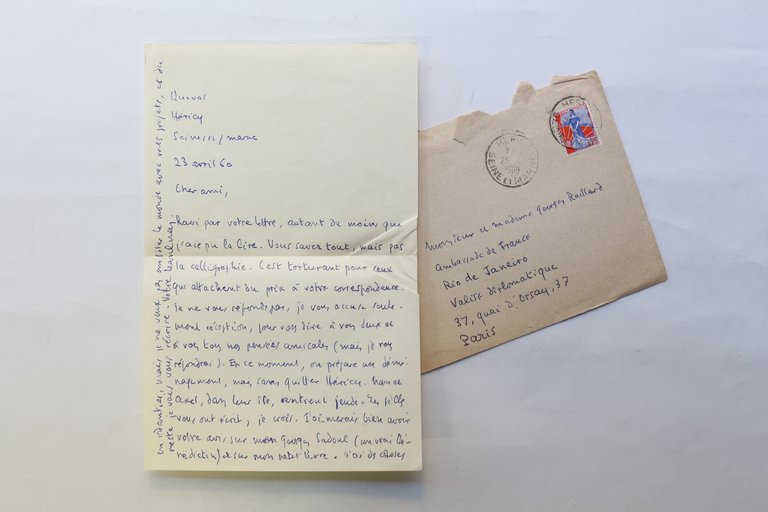 Queval
Héricy
Seine s/ marne
23 avril 60
Cher ami,
Ravi par votre lettre, autant du moins que
j'aie pu la lire. Vous savez tout, mais pas
la calligraphie. C'est torturant pour ceux
qui attachent du prix à votre correspondance.
Je ne vous réponds pas, je vous accuse seule-
ment réception, pour vous dire à vous deux et
à vous tous nos pensées amicales (mais je vous
répondrai). En ce moment, on prépare un démé-
nagement, mais sans quitter Héricy.
axel, dans leur île, rentrent jeudi. Les filles
vous ont écrit, je crois. J'aimerais bien avoir
votre avis sur mon Georges Sadoul (un vrai bé-
nédictin) et sur mon petit livre. J'ai de choses
en chantier, mais je ne veux pas embêter le monde avec mes projets, et du
reste je vais vous récrire. Votre
HERICY
SEINE ET MARNE
Monsieur et madame Georges Raillard
ambassade de France
Rio de Janeiro
Valise diplomatique
37, quai d'Orsay, 37
Paris